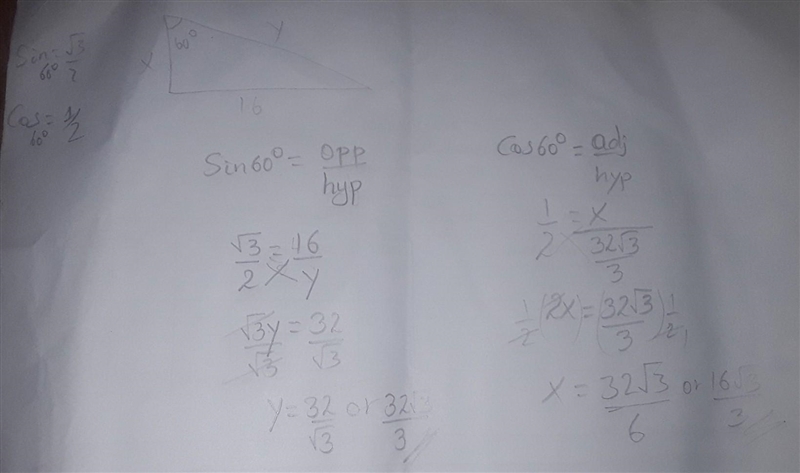 60° y
x
16
Sin 60° = √3/2
Cos 60° = 1/2
Sin60° = opp/hyp
√3/2 = 16/y
√3y/√3 = 32/√3
y = 32/√3 or 32√3/3
Cos60° = adj/hyp
1/2 = x/(32√3/3)
1/2 (2x) = (32√3/3) 1/2
x = 32√3/6 or 16√3/3